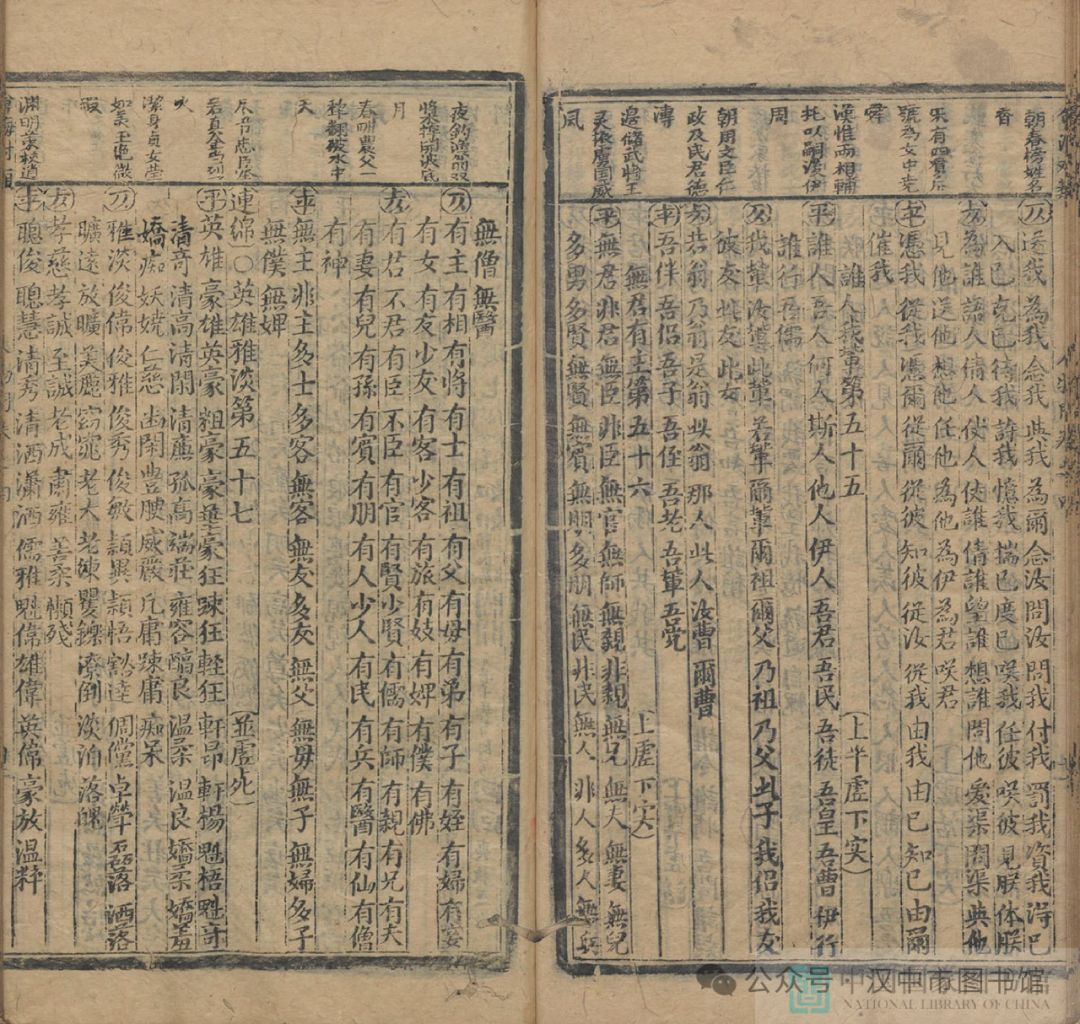 朝春榜姓名
香
果有四實后
號為女中堯
舜
漢惟兩相輔
托以嗣漢伊
周
朝用文臣仁
政及民君德
溥
邊儲武將王
灵依慮國威
風
仄 送我 為我 念我 與我 為爾 念汝 問汝 問我 付我 罰我 資我 淂已
入已 克已 待我 許我 憶我 揣已 度已 咲我 任彼 咲彼 見朕 体朕
去 為誰 語人 倩人 使人 使誰 倩誰 望誰 想誰 問他 愛渠 問渠 與他
見他 送他 想他 任他 為他 為伊 為君 咲君
平 憑我 從我 憑爾 從爾 從彼 知彼 從汝 從我 由我 由已 知已 由爾
催我
誰人我輩第五十五 上半虛下实
平 誰人 吾人 何人 斯人 他人 伊人 吾君 吾民 吾徒 吾皇 吾曹 伊行
誰行 吾儒
仄 我輩 汝輩 此輩 若輩 爾輩 爾祖 爾父 乃祖 乃父 此子 我侣 我友
彼友 此友 此女
去 若翁 乃翁 是翁 此翁 那人 此人 汝曹 爾曹
平 吾伴 吾侣 吾子 吾侄 吾老 吾輩 吾党
無君有主第五十六 上虛下实
平 無君 非君 無臣 非臣 無官 無師 無親 非親 無兄 無夫 無妻 無兒
多男 多賢 無賢 無賓 無朋 多朋 無民 非民 無人 非人 多人 無兵
夜釣漁翁双
槳掉開波底
月
春畊農父一
犂翻破水中
天
火
潔身貞女瑩
如美玉
瑕
淵明棄松道
無僧 無醫
仄 有主 有相 有將 有士 有祖 有父 有母 有弟 有子 有姪 有婦 有妾
有女 有友 少友 有客 少客 有旅 有妓 有婢 有僕 有佛
去 有君 不君 有臣 不臣 有官 有賢 少賢 有儒 有師 有親 有兄 有夫
有妻 有兒 有孫 有賓 有朋 有人 少人 有民 有兵 有醫 有仙 有僧
有神
平 無主 非主 多士 多客 無客 無友 多友 無父 無母 無子 無婦 多子
無僕 無婢
連綿〇英雄雅淡第五十七 並虛死
平 英雄 豪雄 英豪 粗豪 豪華 豪狂 踈狂 輕狂 軒昂 軒楊 魁梧 魁竒
清竒 清高 清閒 清廉 孤高 端莊 雍容 醇良 温柔 温良 嬌柔 嬌羞
嬌痴 妖娆 仁慈 幽閑 豊腴 威嚴 凡庸 踈庸 痴呆
仄 雅淡 俊偉 俊雅 俊秀 俊敏 頴異 頴悟 豁達 倜儻 卓犖 磊落 洒落
曠遠 放曠 美麗 窈窕 老大 老竦 矍鑠 潦倒 淡泊 落魄
去 孝慈 孝誠 至誠 老成 肅雍 善柔 懶殘
平 聰俊 聰慧 清秀 清洒 瀟洒 儒雅 魁偉 雄偉 英偉 豪放 温粹
公众号·汉中市图书馆
NATIONAL LIBRARY OF CHINA